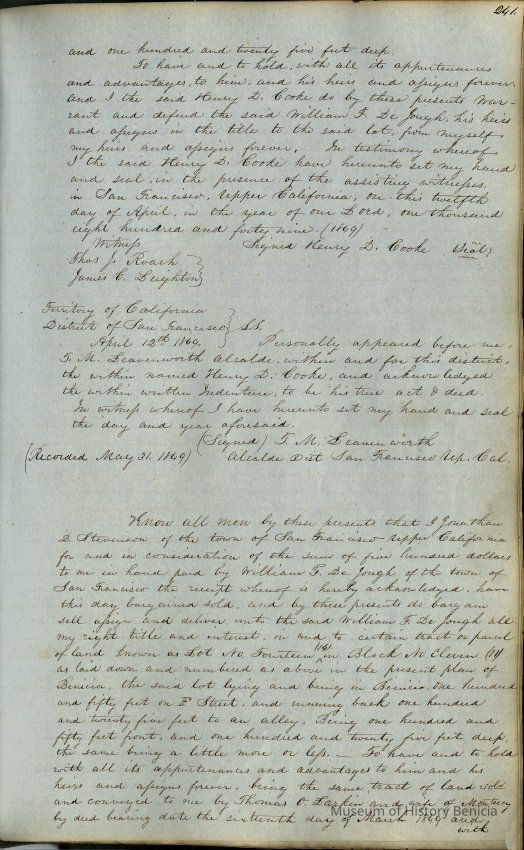 241.
and one hundred and twenty five feet deep.
To have and to hold, with all its appurtenances
and advantages, to him, and his heirs and assigns forever.
and I the said Henry D. Cooke do by these presents War-
rant and defend the said William F. De Jough, his heirs
and assigns in the title to the said lot, from myself,
my heirs and assigns forever. In testimony whereof,
I the said Henry D. Cooke have hereunto set my hand
and seal, in the presence of the assisting witnesses.
in San Francisco, Upper California, on this twelfth
day of April, in the year of our Lord, one thousand
eight hundred and forty nine. (1849)
Witness Signed Henry D. Cooke Seal
Thos J. Roach
James C. Leighton
Territory of California
District of San Francisco SS.
April 12th 1849. Personally appeared before me,
T. M. Leavenworth Alcalde, within and for this district,
the within named Henry D. Cooke, and acknowledged
the within written Indenture, to be his true act & deed.
In witness whereof I have hereunto set my hand and seal
the day and year aforesaid.
(Signed) T. M. Leavenworth
(Recorded May 31. 1849) Alcalde Dist San Francisco Up. Cal.
Know all men by these presents that I Jonathan
D. Stevenson of the town of San Francisco Upper California
for and in consideration of the sum of five hundred dollars
to me in hand paid by William F. De Jough of the town of
San Francisco the receipt whereof is hereby acknowledged, have
this day bargained sold, and by these presents do bargain
sell assign and deliver unto the said William F. De Jough all
my right title and interest, in and to certain tract or parcel
of land known as Lot No. Fourteen (14) in Block No Eleven (11)
as laid down and numbered as above in the present plan of
Benicia, the said lot lying and being in Benicia, one hundred
and fifty feet on F Street, and running back one hundred
and twenty five feet to an alley. Being one hundred and
fifty feet front, and one hundred and twenty five feet deep,
the same being a little more or less. — To have and to hold
with all its appurtenances and advantages to him and his
heirs and assigns forever, being the same tract of land sold
and conveyed to me by Thomas O. Larkin and wife of Monterey
by deed bearing date the sixteenth day of March 1849 and
with
Museum of History Benicia